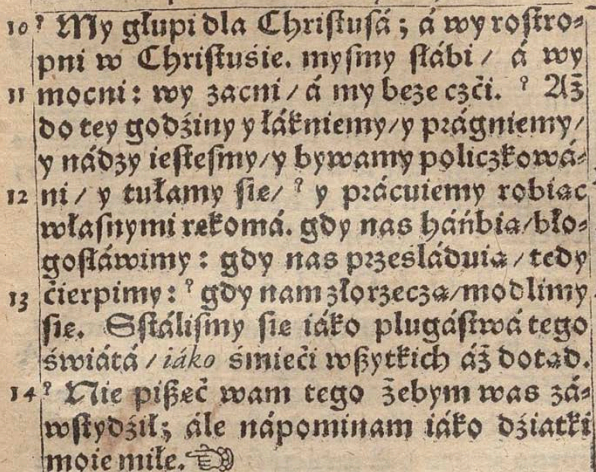 10 ? My głupi dla Chriſtuſá ; á wy roſtro⸗
pni w Chriſtuśie. myſmy ſłábi / á wy
11 mocni : wy zacni / á my beze czći. ? Aż
do tey godźiny y łákniemy / y prágniemy /
y nádzy ieſteſmy / y bywamy policzkowá⸗
12 ni / y tułamy ſie / ? y prácuiemy robiąc
własnymi rękomá. gdy nas háńbią / bło⸗
goſłáwimy : gdy nas przeſláduią / tedy
13 ćierpimy : ? gdy nam złorzeczą / modlimy
ſie. Sſtáliſmy ſie iáko plugáſtwá tego
świátá / iáko śmieći wßytkich áż dotąd.
14 ? Nie pißęć wam tego żebym was zá⸗
wſtydźił ; ále nápominam iáko dźiatki
moie miłe. ☜